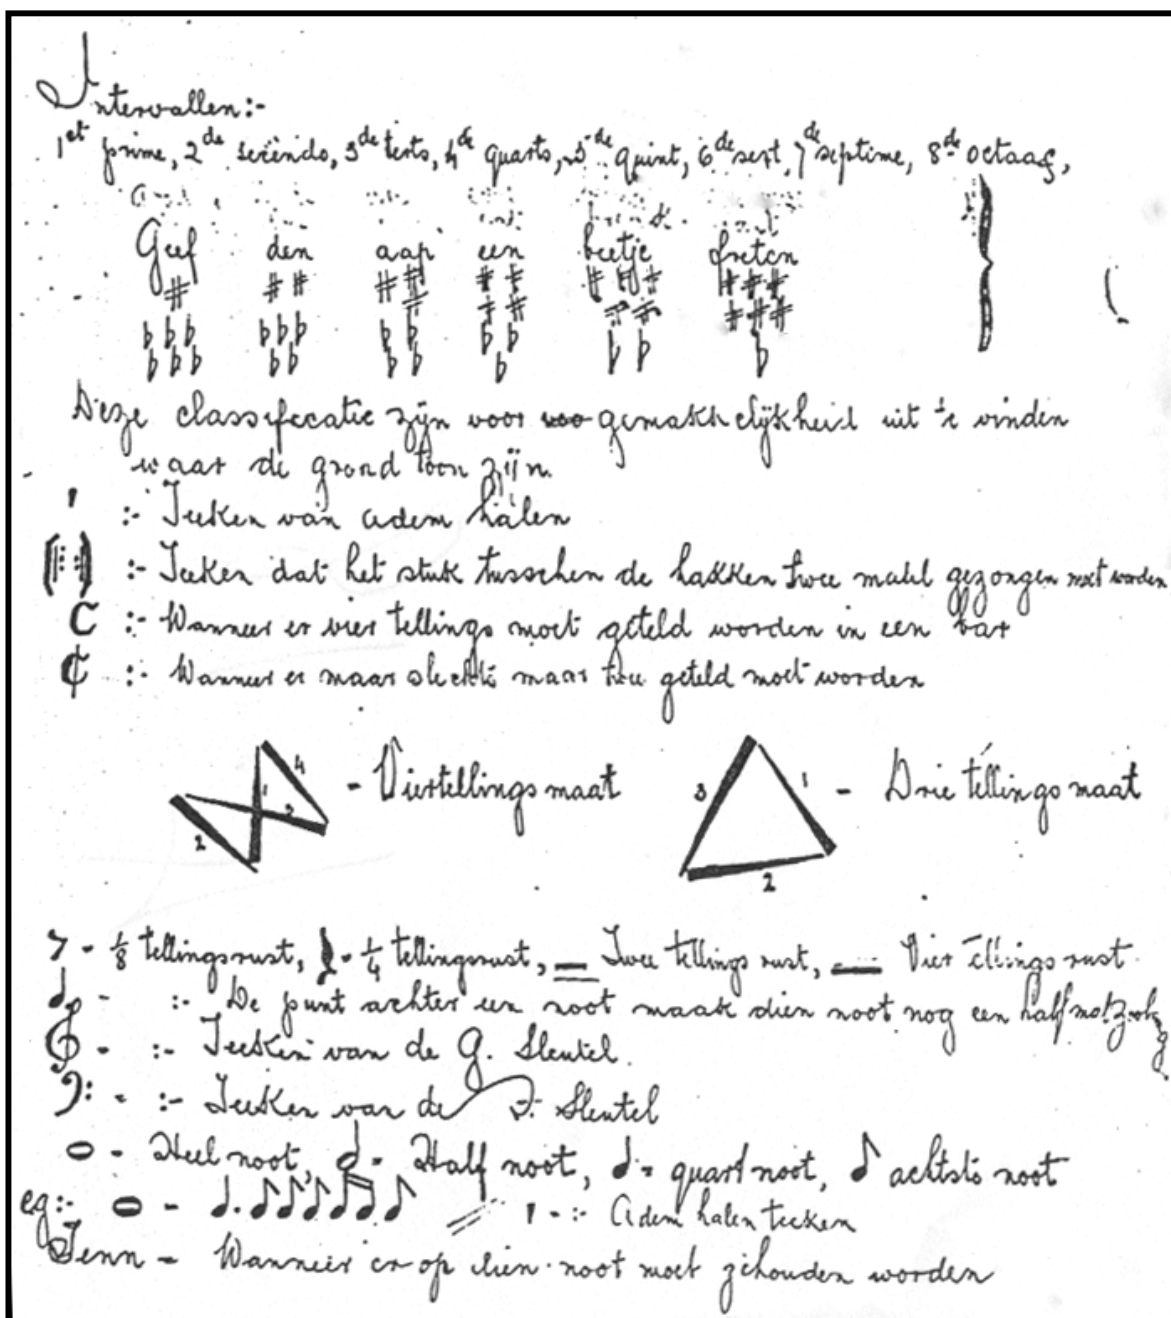 Intervallen:-
1et prime, 2de secëndo, 3de terts, 4de quarts, 5de quint, 6de sext, 7de septime, 8de octaaf,
Geef den aap een beetje freten
# ## ## ## ### ###
## ## ## ###
♭♭♭ ♭♭♭ ♭♭ ♭♭ ♭♭ ♭
♭♭♭ ♭♭ ♭♭ ♭
Deze classifecatie zijn voor gemakkelijkheid uit te vinden
waar de grond toon zijn.
' :- Teeken van adem halen
:- Teeken dat het stuk tusschen de hakken twee maal gezongen moet worden
C :- Wanneer er vier tellings moet geteld worden in een bar
₵ :- Wanneer er maar slechts maar twee geteld moet worden
1 2 3 4 - Viertellings maat 1 2 3 - Drie tellings maat
- 1/8 tellingsrust, - 1/4 tellingsrust, Twee tellings rust, Vier tellings rust.
- :- De punt achter een noot maak dien noot nog een half
- :- Teeken van de G. Sleutel.
- :- Teeken van de F. Sleutel
- Heel noot, - Half noot, = quart noot, ♪ achtste noot
eg:- - ' - :- Adem halen teeken
- Wanneer er op dien noot moet gehouden worden